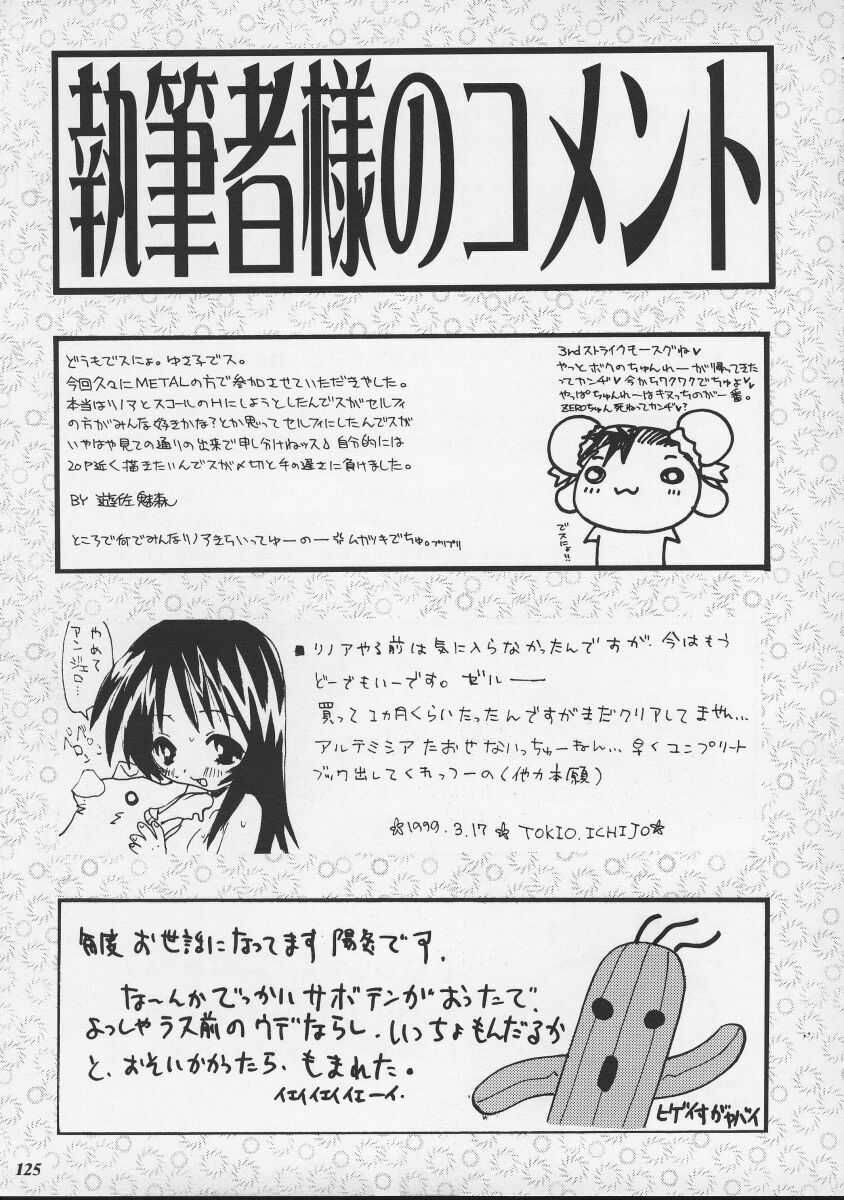 執筆者様のコメント
どうもでスにょ。ゆさ子でス。
今回久々にMETALの方で参加させていただきやした。
本当はリノアとスコールのHにしようとしたんでスがセルフィ
の方がみんな好きかな?とか思ってセルフィにしたんでスが
いやはや見ての通りの出来で申し分けねッス♪自分的には
20P近く描きたいんでスが〆切と手の遅さに負けました。
BY 遊佐 魅森
ところで何でみんなリノアきらいってゆーのー ムカツキでちゅ。プリプリ
3rdストライクモースグね♥
やっとボクのちゅんれーが帰ってきた
ってカンヂ♥今からワクワクでちゅょ♥
やっぱちゅんれーはキヌっちのが一番。
ZEROちゅん死ねってカンヂ♥?
でスにょ!!
やめて
アンジェロ…
ペロン
■リノアやる前は気に入らなかったんですが、今はもう
どーでもいーです。ゼルー
買って1カ月くらいたったんですがまだクリアしてません…
アルテミシアたおせないっちゅーねん…早くコンプリート
ブック出してくれっつーの(他力本願)
☆1999.3.17☆ TOKIO.ICHIJO☆
毎度お世話になってます 陽炎です。
な〜んかでっかいサボテンがおったで、
よっしゃラス前のウデならし、いっちょもんだるか
と、おそいかかったら、もまれた。
イエイイエイイエーイ.
ヒゲイすがヤバイ
125